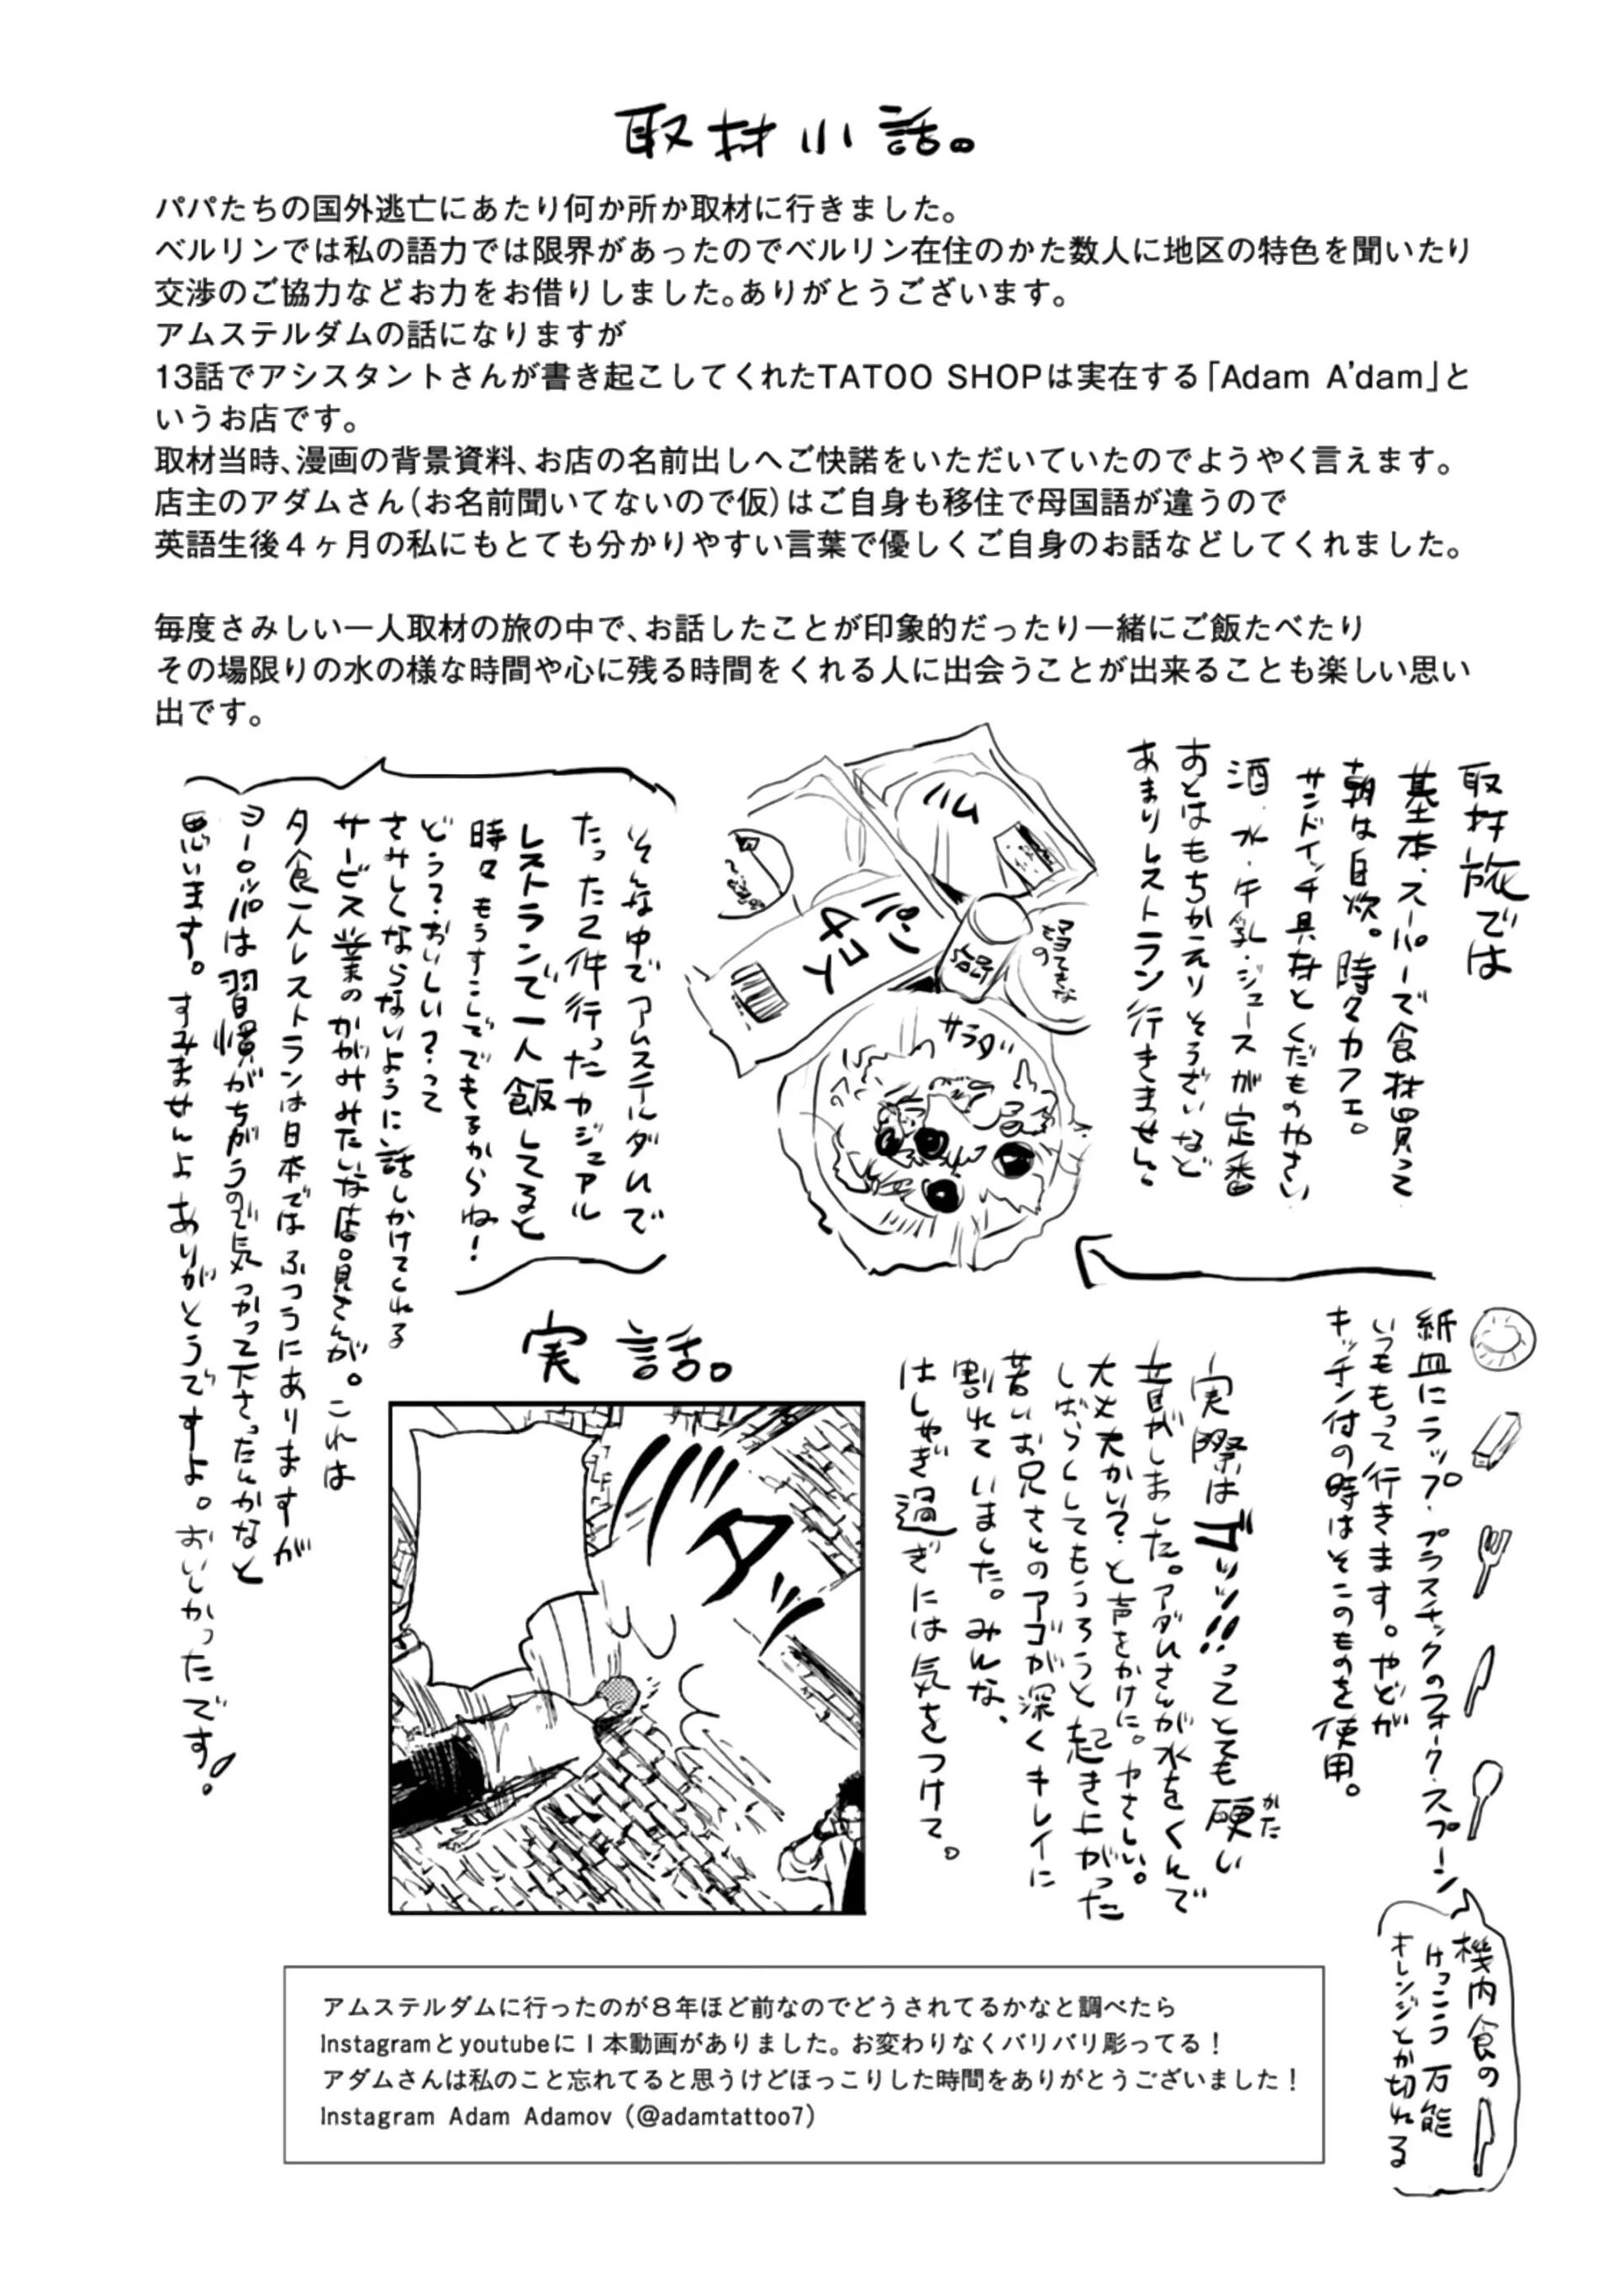 取材小話。
パパたちの国外逃亡にあたり何か所か取材に行きました。
ベルリンでは私の語力では限界があったのでベルリン在住のかた数人に地区の特色を聞いたり
交渉のご協力などお力をお借りしました。ありがとうございます。
アムステルダムの話になりますが
13話でアシスタントさんが書き起こしてくれたTATOO SHOPは実在する「Adam A'dam」と
いうお店です。
取材当時、漫画の背景資料、お店の名前出しへご快諾をいただいていたのでようやく言えます。
店主のアダムさん(お名前聞いてないので仮)はご自身も移住で母国語が違うので
英語生後4ヶ月の私にもとても分かりやすい言葉で優しくご自身のお話などしてくれました。
毎度さみしい一人取材の旅の中で、お話したことが印象的だったり一緒にご飯たべたり
その場限りの水の様な時間や心に残る時間をくれる人に出会うことが出来ることも楽しい思い
出です。
取材旅では
基本、スーパーで食材買って
朝は自炊。時々カフェ。
サンドイッチ具材とくだものやさい
酒・水・牛乳・ジュースが定番
あとはもちかえりそうざいなど
あまりレストラン行きません。
ハム
パン
4コ
サラダ
そんな中でアムステルダムで
たった2件行ったカジュアル
レストランで一人飯してると
時々もうすこしででもるからね!
どうて・おいしい?って
さみしくならないように話しかけてくれる
サービス業のかがみみたいな店員さんが。これは
夕食一人レストランは日本ではふつうにありますが
ヨーロッパは習慣がちがうので気つかって下さったんかなと
思います。すみませんよありがとうですよ。おいしかったです!
紙皿にラップ・プラスチックのフォーク・スプーン
いつももって行きます。やどが
キッチン付の時はそこのものを使用。
機内食の
けっこう万能
オレンジとか切れる
実際はゴッッ!!ってとても硬い
かた
音がしました。アダムさんが水をくんで
大丈夫かい?と声をかけに。やさしい。
しばらくしてもうろうと起き上がった
若いお兄さんのアゴが深くキレイに
割れていました。みんな、
はしゃぎ過ぎには気をつけて。
実話。
バタッ
アムステルダムに行ったのが8年ほど前なのでどうされてるかなと調べたら
Instagramとyoutubeに1本動画がありました。お変わりなくバリバリ彫ってる!
アダムさんは私のこと忘れてると思うけどほっこりした時間をありがとうございました!
Instagram Adam Adamov (@adamtattoo7)